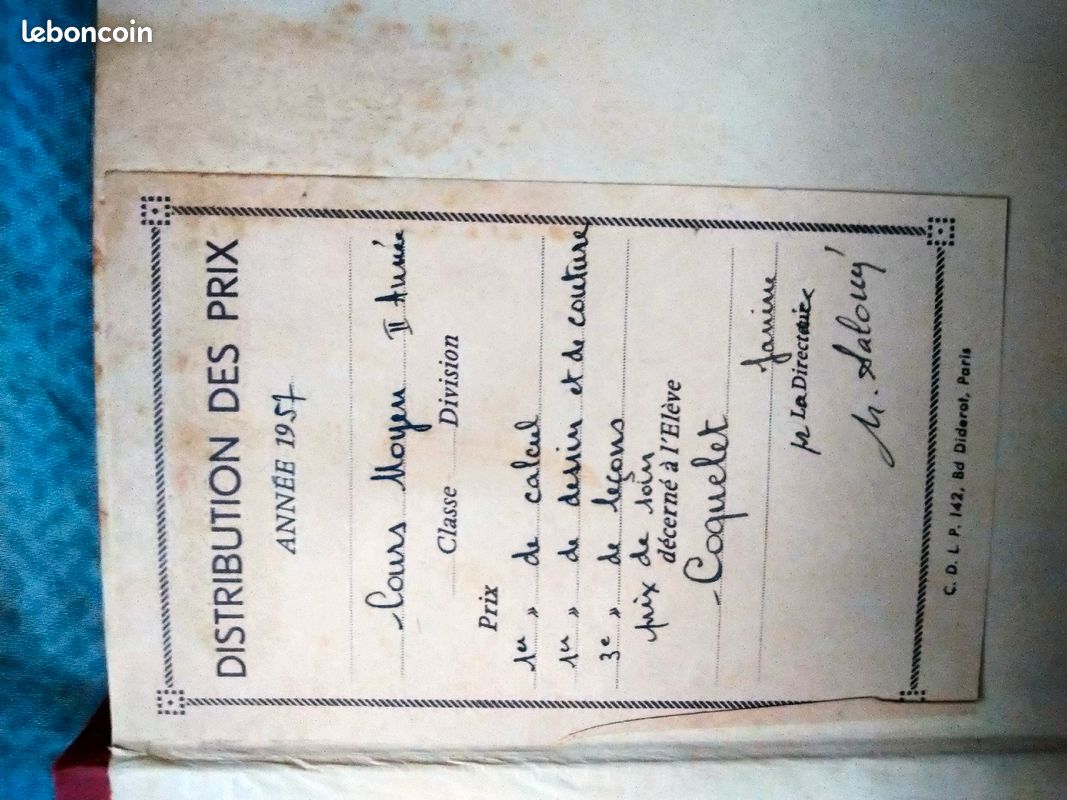 leboncoin
DISTRIBUTION DES PRIX
ANNÉE 1957
Cours Moyen II Année
Classe Division
Prix
1er " de calcul
1er " de dessin et de couture
3e " de leçons
prix de soin
décerné à l'Elève
Coquelet
Janine
La Directrice
C. D. L. P. 142, Bd Diderot, Paris